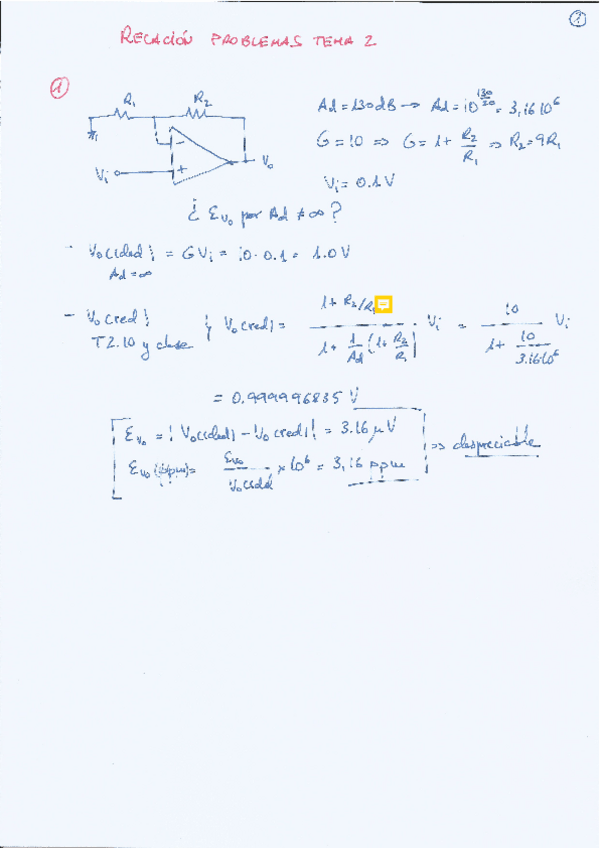 1
RELACIÓN PROBLEMAS TEMA 2
1
R1 R2
Vi - + Vo
Ad = 130dB → Ad = 10^(130/20) = 3,16 10^6
G = 10 ⇒ G = 1 + R2/R1 ⇒ R2 = 9R1
Vi = 0.1V
¿ Evo por Ad ≠ ∞ ?
- Vo(ideal) = G Vi = 10 · 0.1 = 1.0 V
Ad = ∞
- Vo(real) } Vo(real) = (1 + R2/R1) / (1 + 1/Ad (1 + R2/R1)) · Vi = 10 / (1 + 10/3.16·10^6) Vi
T2.10 y clase
= 0.999996835 V
Evo = |Vo(ideal) - Vo(real)| = 3.16 μV
Evo (ppm) = Evo/Vo(ideal) × 10^6 = 3,16 ppm ⇒ despreciable